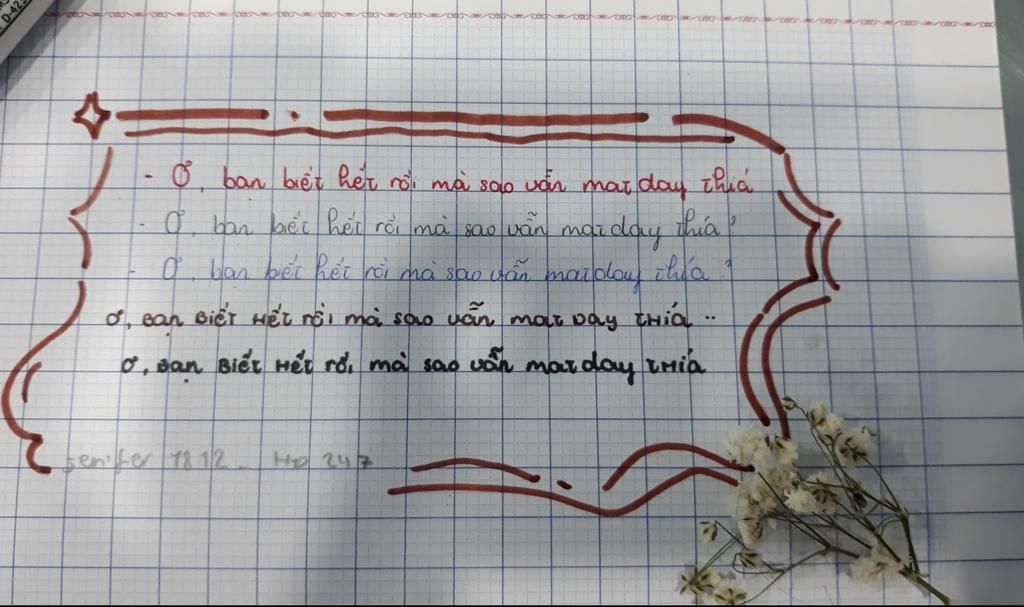 D-42
- Ơ, bạn biết hết rồi mà sao vẫn mat day thiá
- Ơ, bạn biết hết rồi mà sao vẫn mat day thiá?
- Ơ, bạn biết hết rồi mà sao vẫn mat day thiá?
Ơ, BẠN BIẾT HẾT rồi mà sao vẫn mat DAY THIÁ ..
Ơ, BẠN BIẾT HẾT rồi, mà sao vẫn mat day THIÁ
Jenifer 1812 - Hp 247